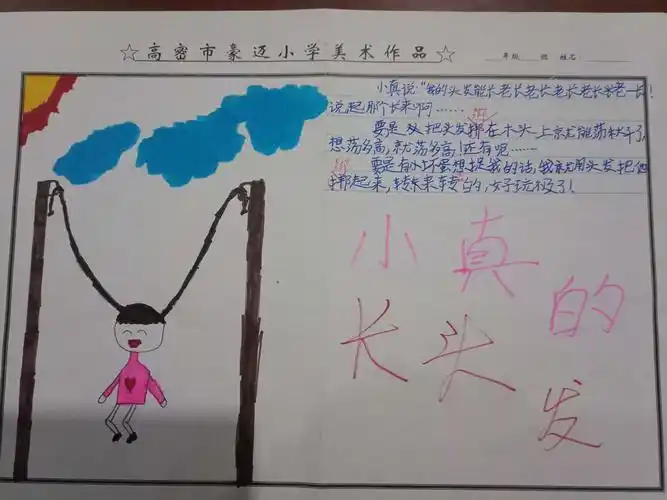 ☆高密市豪迈小学美术作品☆
年级 班 姓名:
小真说:“我的头发能长老长老长老长老长老一长!
说起那个长来啊……
要是 把头发绑在木头上就能荡秋千了!
想荡多高,就荡多高!还有呢……
要是有小坏蛋想捉我的话,我就用头发把他
绑起来,转来转去的,好玩极了!
小真的
长头发